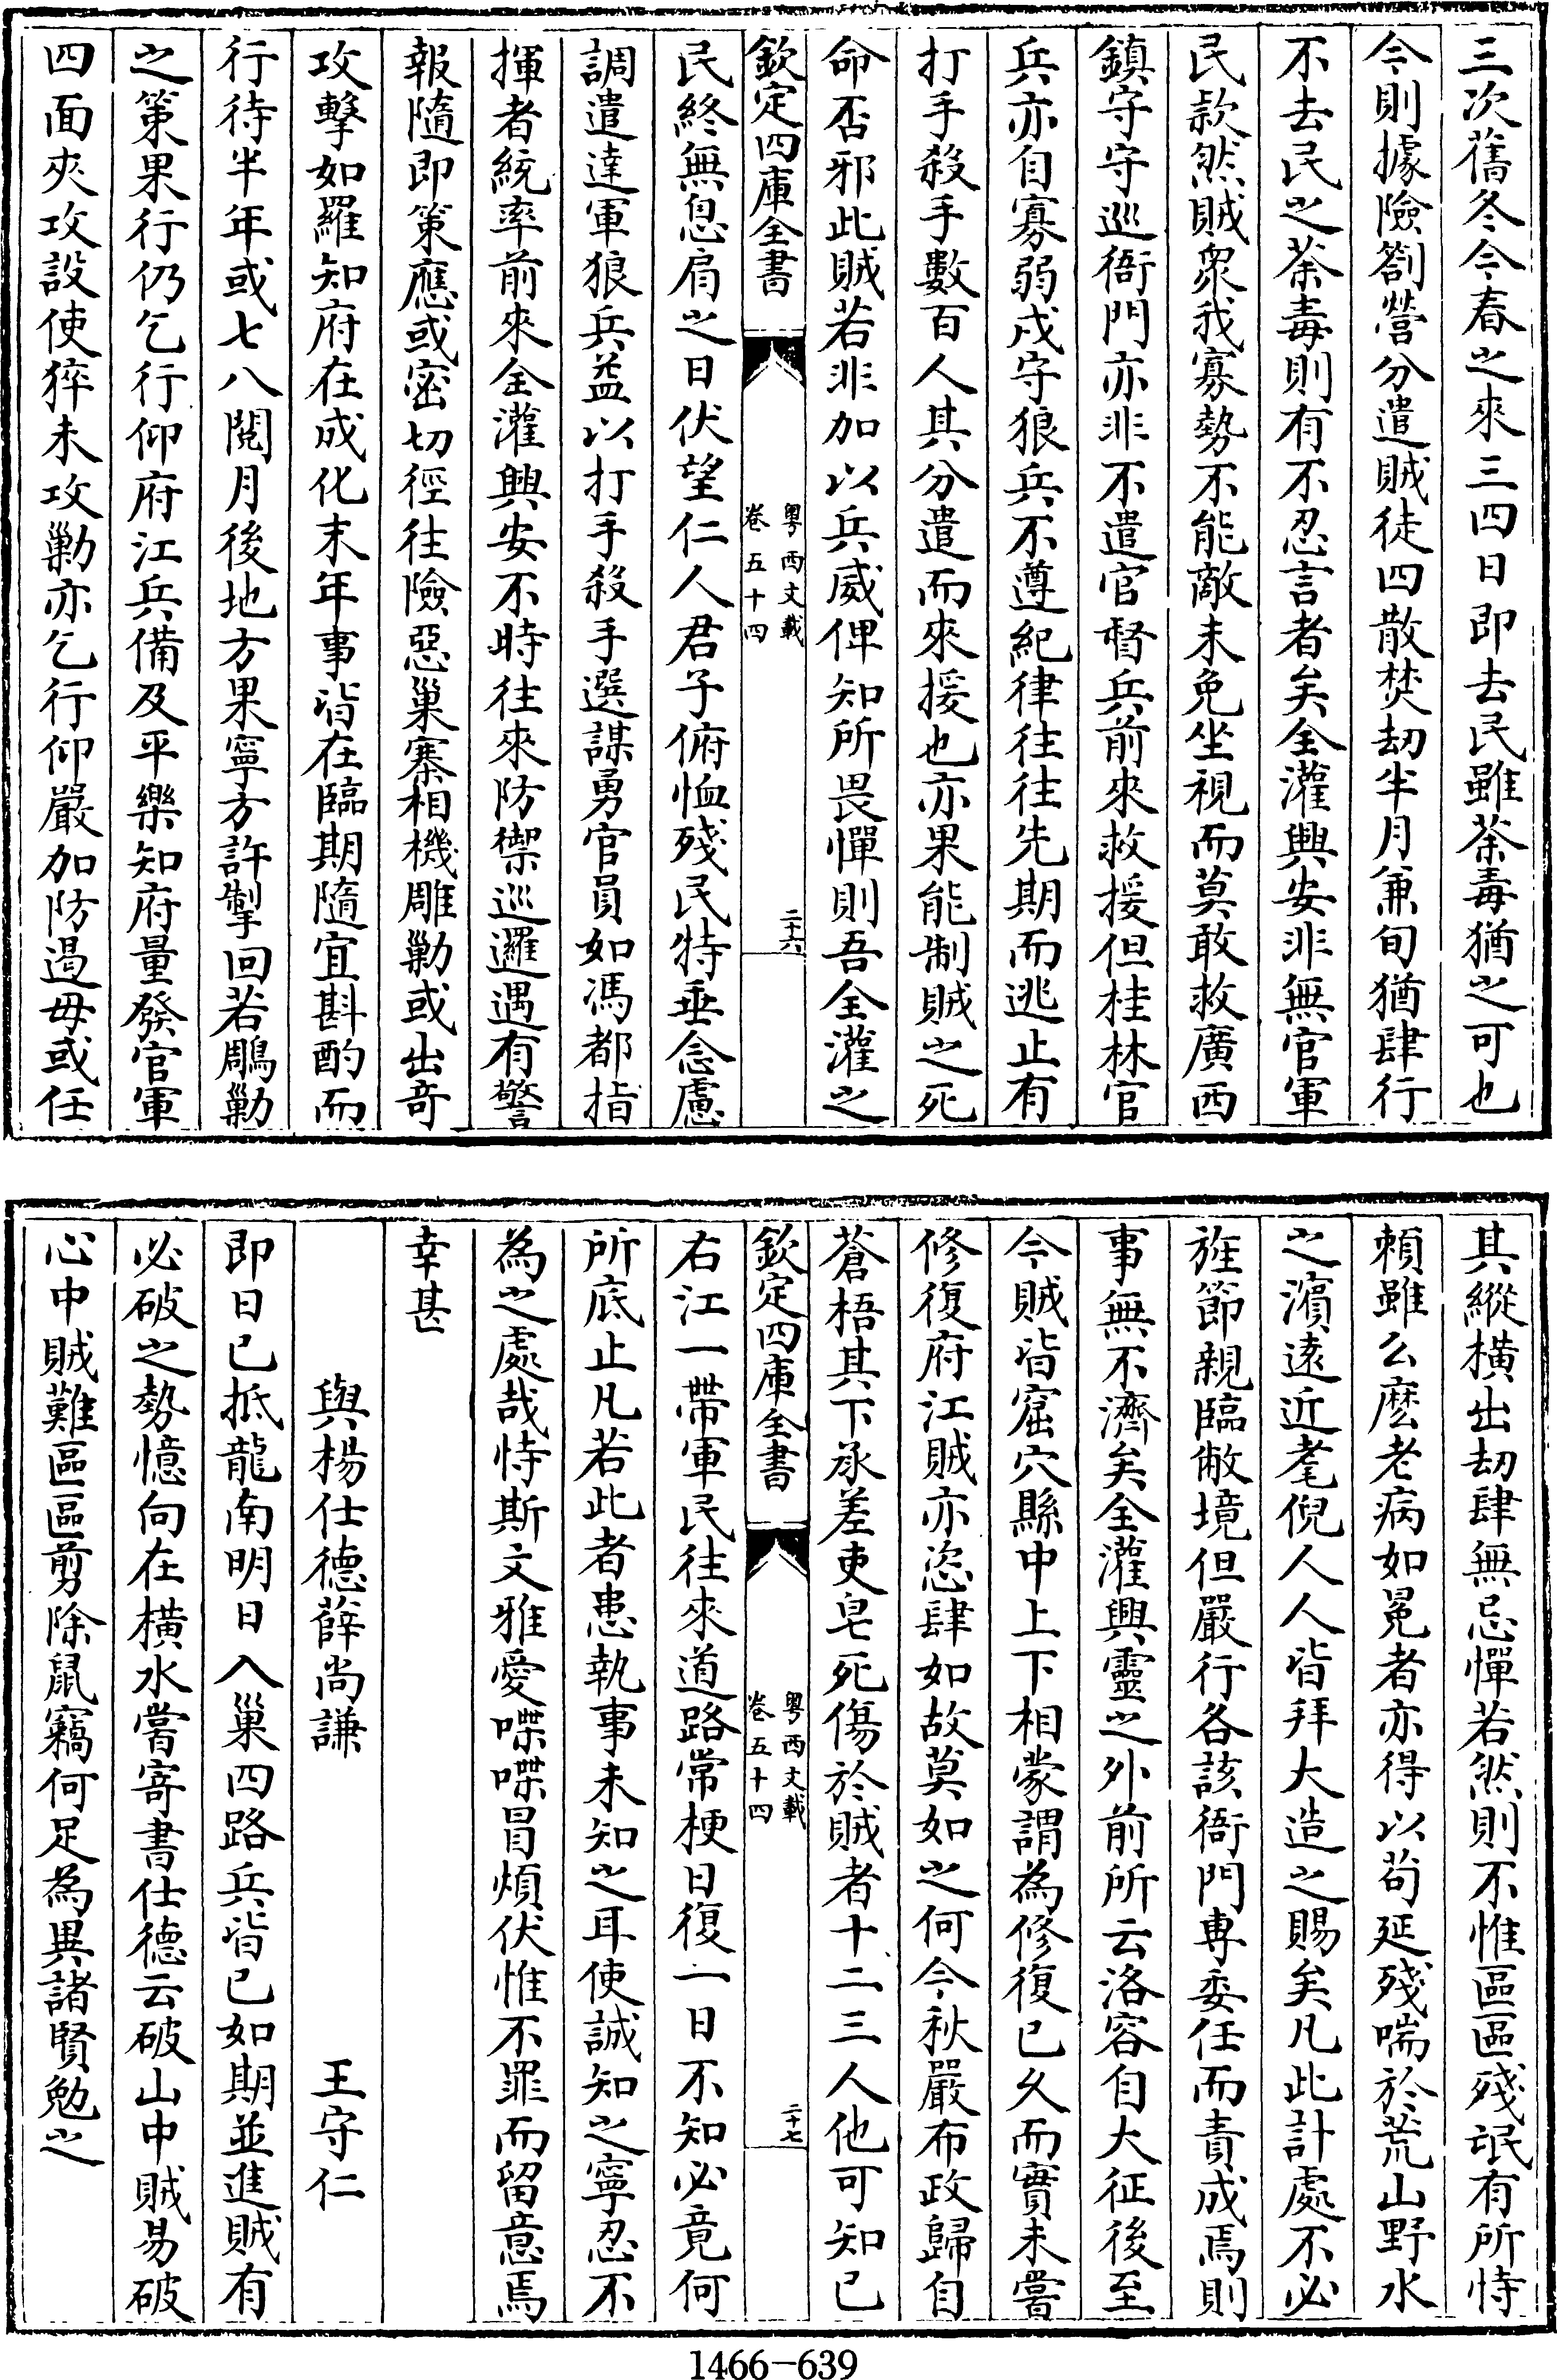 三次舊冬今春之來三四日即去民雖荼毒猶之可也
今則據險劄營分遣賊徒四散焚劫半月兼旬猶肆行
不去民之荼毒則有不忍言者矣全灌興安非無官軍
民款然賊衆我寡勢不能敵未免坐視而莫敢救廣西
鎮守守巡衙門亦非不遣官督兵前來救援但桂林官
兵亦自寡弱戍守狼兵不遵紀律往往先期而逃止有
打手殺手數百人其分遣而來援也亦果能制賊之死
命否邪此賊若非加以兵威俾知所畏憚則吾全灌之
欽定四庫全書
粤西文載
卷五十四
二十六
民終無息肩之日伏望仁人君子俯恤殘民特垂念慮
調遣達軍狼兵益以打手殺手選謀勇官員如馮都指
揮者統率前來全灌興安不時往來防禦巡邏遇有警
報隨即策應或密切徑往險惡巢寨相機雕勦或出竒
攻擊如羅知府在成化末年事皆在臨期隨宜斟酌而
行待半年或七八閱月後地方果寧方許掣回若鵰勦
之策果行仍乞行仰府江兵備及平樂知府量發官軍
四面夾攻設使猝未攻勦亦乞行仰嚴加防遏毋或任
其縱橫出劫肆無忌憚若然則不惟區區殘氓有所恃
頼雖么麽老病如冕者亦得以苟延殘喘於荒山野水
之濱遠近耄倪人人皆拜大造之賜矣凡此計處不必
旌節親臨敝境但嚴行各該衙門専委任而責成焉則
事無不濟矣全灌興靈之外前所云洛容自大征後至
今賊皆窟穴縣中上下相蒙謂為修復已久而實未嘗
修復府江賊亦恣肆如故莫如之何今秋嚴布政歸自
蒼梧其下承差吏皂死傷於賊者十二三人他可知已
欽定四庫全書
粤西文載
卷五十四
二十七
右江一帶軍民往來道路常梗日復一日不知必竟何
所底止凡若此者患執事未知之耳使誠知之寧忍不
為之處哉恃斯文雅愛喋喋冒煩伏惟不罪而留意焉
幸甚
與楊仕德薛尚謙　王守仁
即日已抵龍南明日入巢四路兵皆已如期並進賊有
必破之勢憶向在横水嘗寄書仕德云破山中賊易破
心中賊難區區剪除鼠竊何足為異諸賢勉之
1466-639